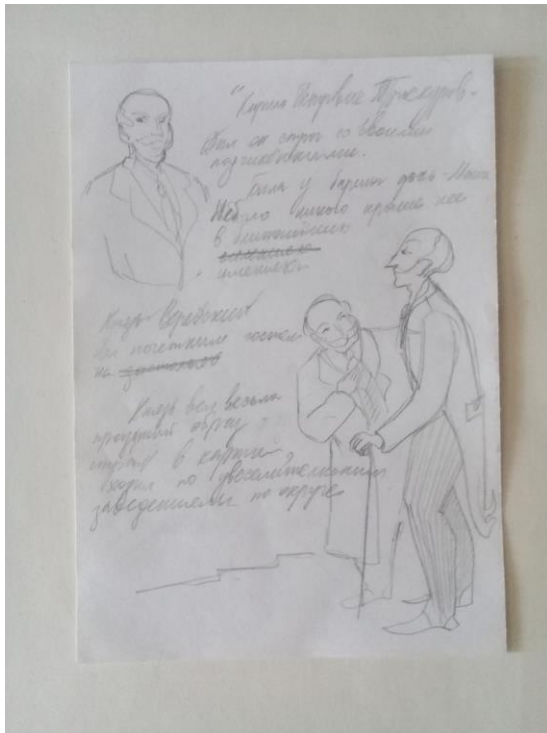 "Кирила Петрович Троекуров -
был он строг со своими
подчинёнными.
Была у барина дочь - Маша
Не было никого краше нее
в ближайших
имениях.
Князь Верейский
был почетным гостем
на
Князь вел весьма
праздный образ
играл в карты
ходил по увеселительным
заведениям по округе